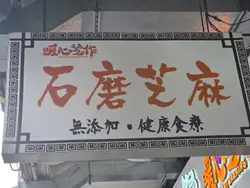 暖心芝作
石磨芝麻
無添加·健康食療